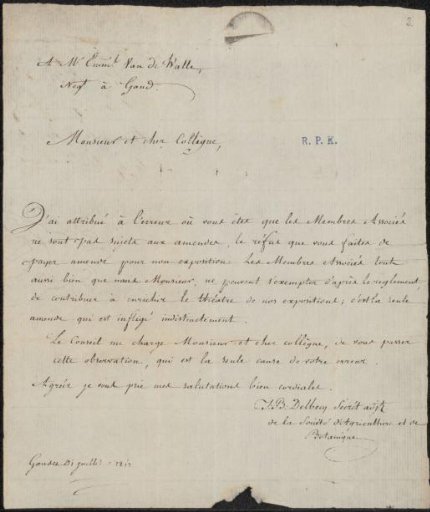 2
A Mr Eman.l Van de Walle,
Negt à Gand.
Monsieur et cher Collègue,
R. P. K.
J'ai attribué à l'erreur où vous êtes que les Membres Associés
ne sont pas sujets aux amendes, le réfus que vous faites de
payer amende pour non exposition. Les Membres Associés tout
aussi bien que nous Monsieur, ne peuvent s'exempter d'après le reglement
de contribuer à enrichir le théatre de nos expositions; c'est la seule
amende qui est infligé indistinctement.
Le Conseil me charge Monsieur et cher collègue, de vous passer
cette observation, qui est la seule cause de votre erreur.
Agréez je vous prie mes salutations bien cordiales.
J. B. Delbecq Secrét adjt
de la Société d'Agriculture et de
Botanique
Gand ce juillet